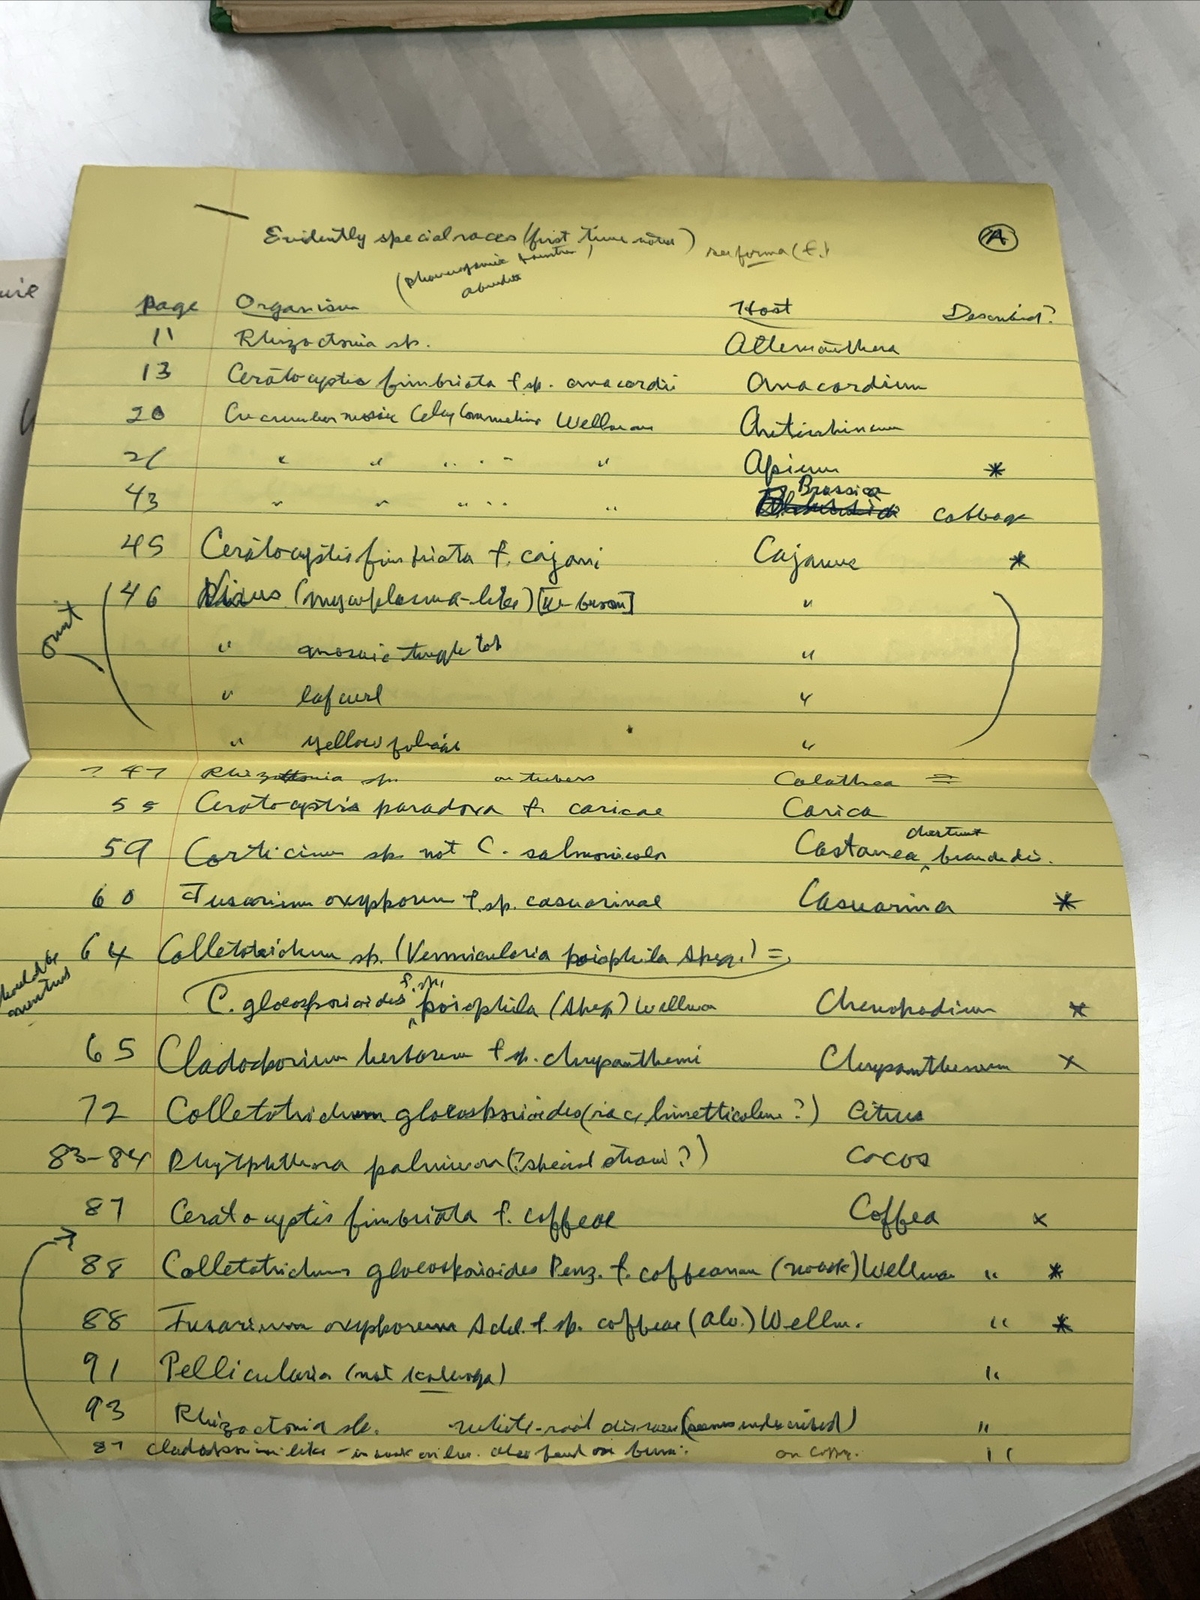 Evidently special races (first time noted) forma (f.) A
page Organism Host Described?
11 Rhizoctonia sp. Alternanthera
13 Ceratocyptis fimbriata f. sp. anacardii Anacardium
20 Cucumber mosaic Celery Commelina Wellman Antirrhinum
21 " " " " " Apium *
43 " " " " " Brassica cabbage
45 Ceratocyptis fimbriata f. cajani Cajanus *
omit
46 Virus (mycoplasma-like) "
" mosaic "
" leaf curl "
" yellow "
? 47 Rhizoctonia sp. on tubers Calathea =
55 Ceratocyptis paradoxa f. caricae Carica
chestnut
59 Corticium sp. not C. salmonicola Castanea
60 Fusarium oxysporum f. sp. casuarinae Casuarina *
64 Colletotrichum sp. (Vermicularia poiophila Speg.) =
should be
C. gloeosporioides f. sp. poiophila (Speg) Wellman Chenopodium *
65 Cladosporium herbarum f. sp. chrysanthemi Chrysanthemum x
72 Colletotrichum gloeosporioides limetticolum ?) Citrus
83-84 Phytophthora palmivora (? special strain ?) Cocos
87 Ceratocyptis fimbriata f. coffeae Coffea x
88 Colletotrichum gloeosporioides Penz. f. coffeanum (noack) Wellman " *
88 Fusarium oxysporum Schl. f. sp. coffeae (alv.) Wellm. " *
91 Pellicularia (not koleroga) "
93 Rhizoctonia sp. white-root disease (seems undescribed) "
87 Cladosporium like - also found on "